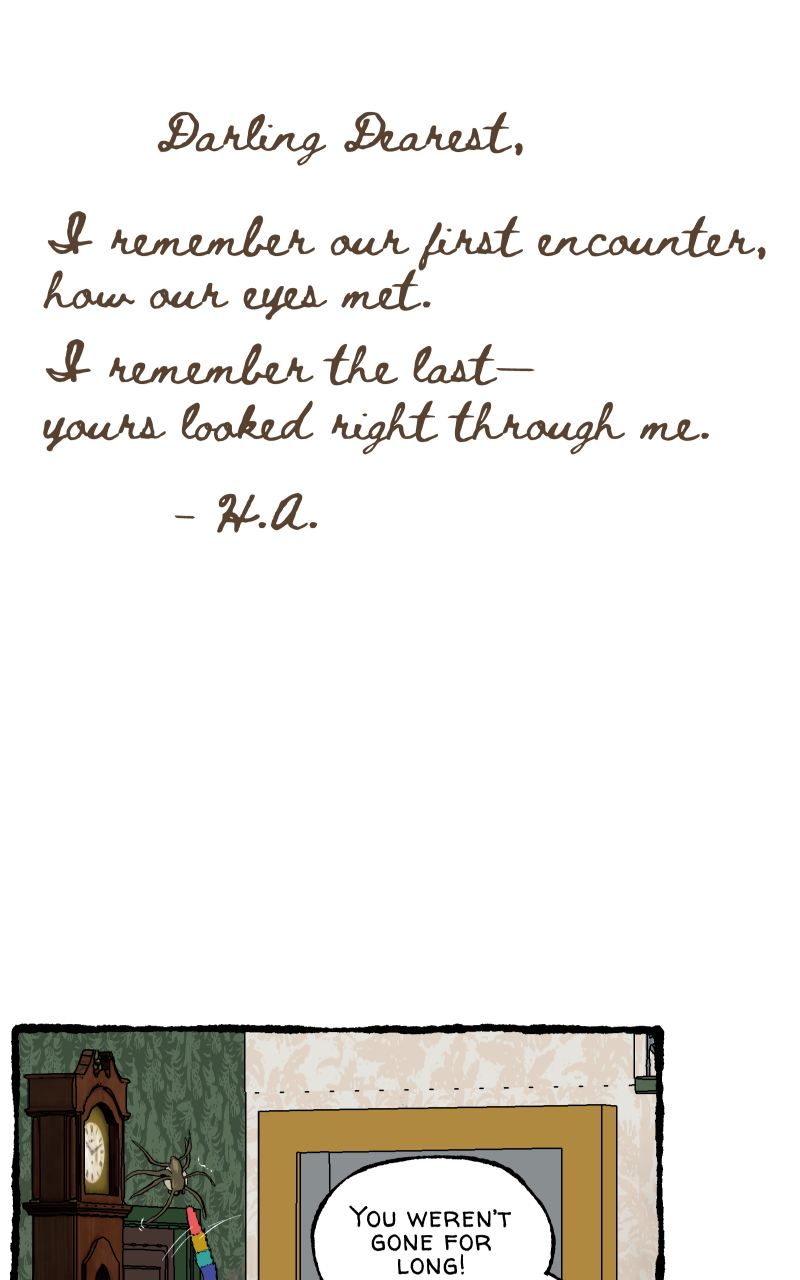 Darling Dearest,
I remember our first encounter,
how our eyes met.
I remember the last—
yours looked right through me.
- H.A.
YOU WEREN'T
GONE FOR
LONG!